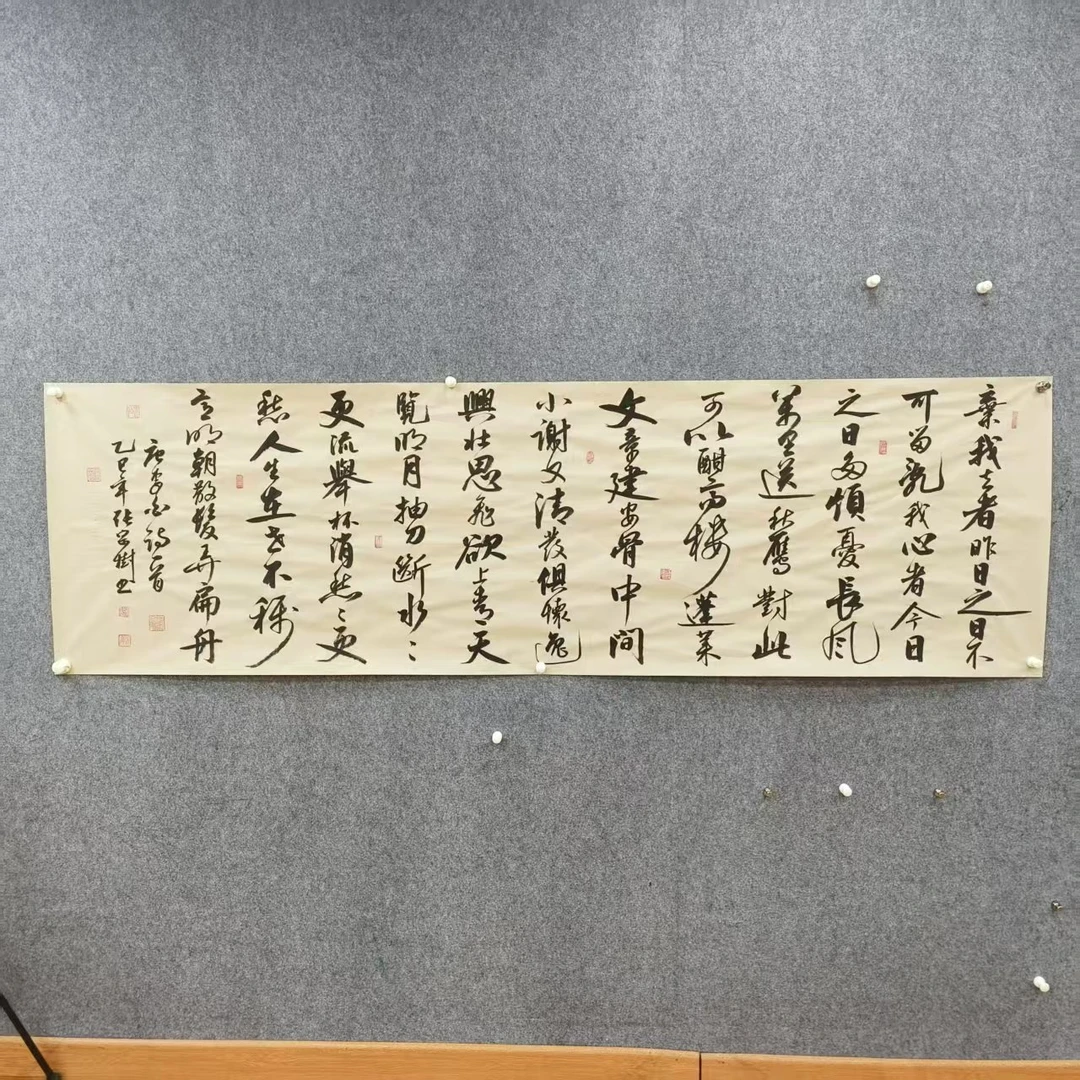 棄我去者昨日之日不
可留亂我心者今日
之日多煩憂長風
萬里送秋鴈對此
可以酣高楼蓬莱
文章建安骨中間
小謝又清發俱懷逸
興壯思飛欲上青天
覽明月抽刀斷水〻
更流舉杯消愁〻更
愁人生在世不稱
意明朝散髮弄扁舟
唐李白詩一首
乙巳年張樹书